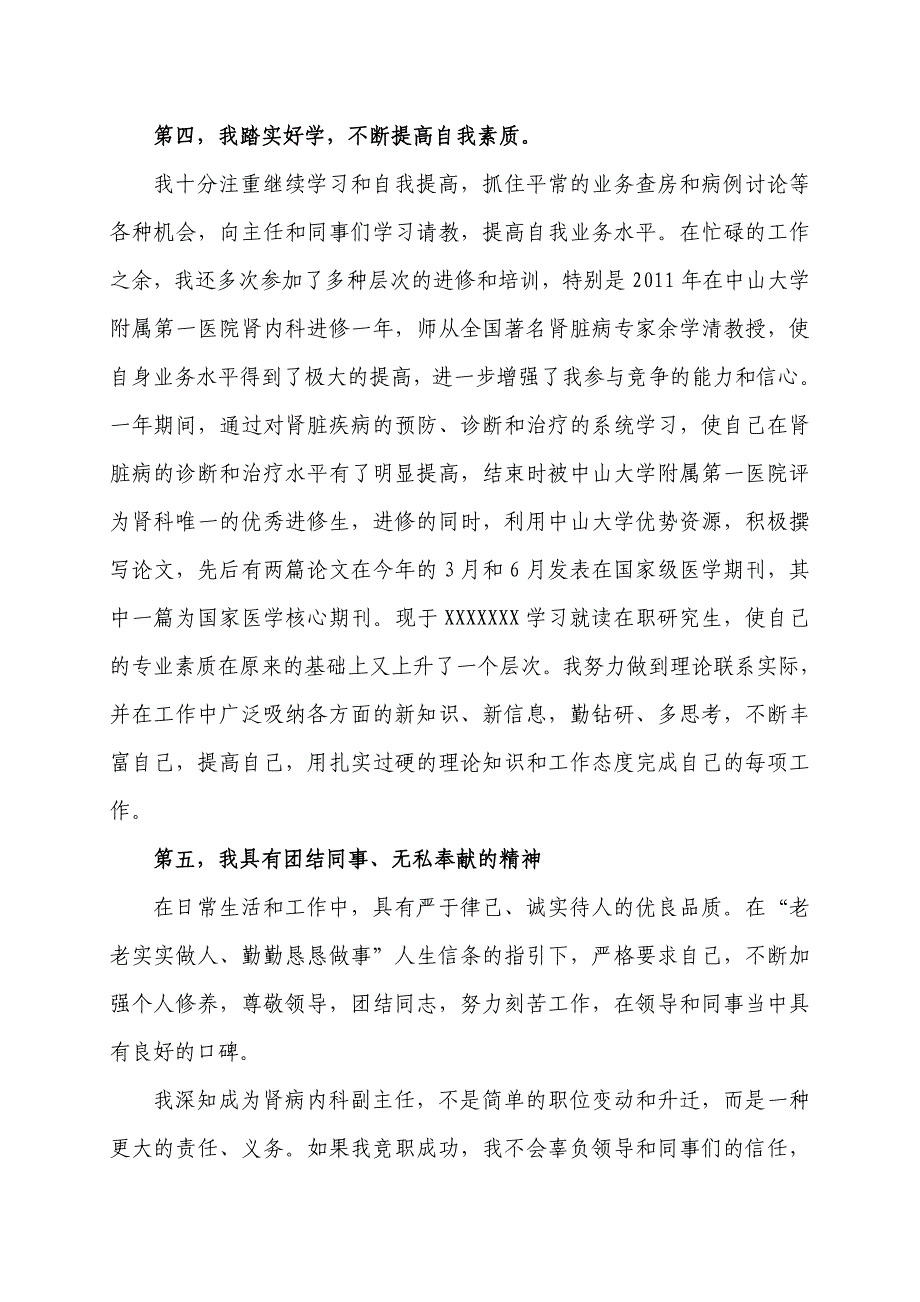 第四，我踏实好学，不断提高自我素质。
我十分注重继续学习和自我提高，抓住平常的业务查房和病例讨论等
各种机会，向主任和同事们学习请教，提高自我业务水平。在忙碌的工作
之余，我还多次参加了多种层次的进修和培训，特别是 2011 年在中山大学
附属第一医院肾内科进修一年，师从全国著名肾脏病专家余学清教授，使
自身业务水平得到了极大的提高，进一步增强了我参与竞争的能力和信心。
一年期间，通过对肾脏疾病的预防、诊断和治疗的系统学习，使自己在肾
脏病的诊断和治疗水平有了明显提高，结束时被中山大学附属第一医院评
为肾科唯一的优秀进修生，进修的同时，利用中山大学优势资源，积极撰
写论文，先后有两篇论文在今年的 3 月和 6 月发表在国家级医学期刊，其
中一篇为国家医学核心期刊。现于 XXXXXXX 学习就读在职研究生，使自己
的专业素质在原来的基础上又上升了一个层次。我努力做到理论联系实际，
并在工作中广泛吸纳各方面的新知识、新信息，勤钻研、多思考，不断丰
富自己，提高自己，用扎实过硬的理论知识和工作态度完成自己的每项工
作。
第五，我具有团结同事、无私奉献的精神
在日常生活和工作中，具有严于律己、诚实待人的优良品质。在“老
老实实做人、勤勤恳恳做事”人生信条的指引下，严格要求自己，不断加
强个人修养，尊敬领导，团结同志，努力刻苦工作，在领导和同事当中具
有良好的口碑。
我深知成为肾病内科副主任，不是简单的职位变动和升迁，而是一种
更大的责任、义务。如果我竞职成功，我不会辜负领导和同事们的信任，